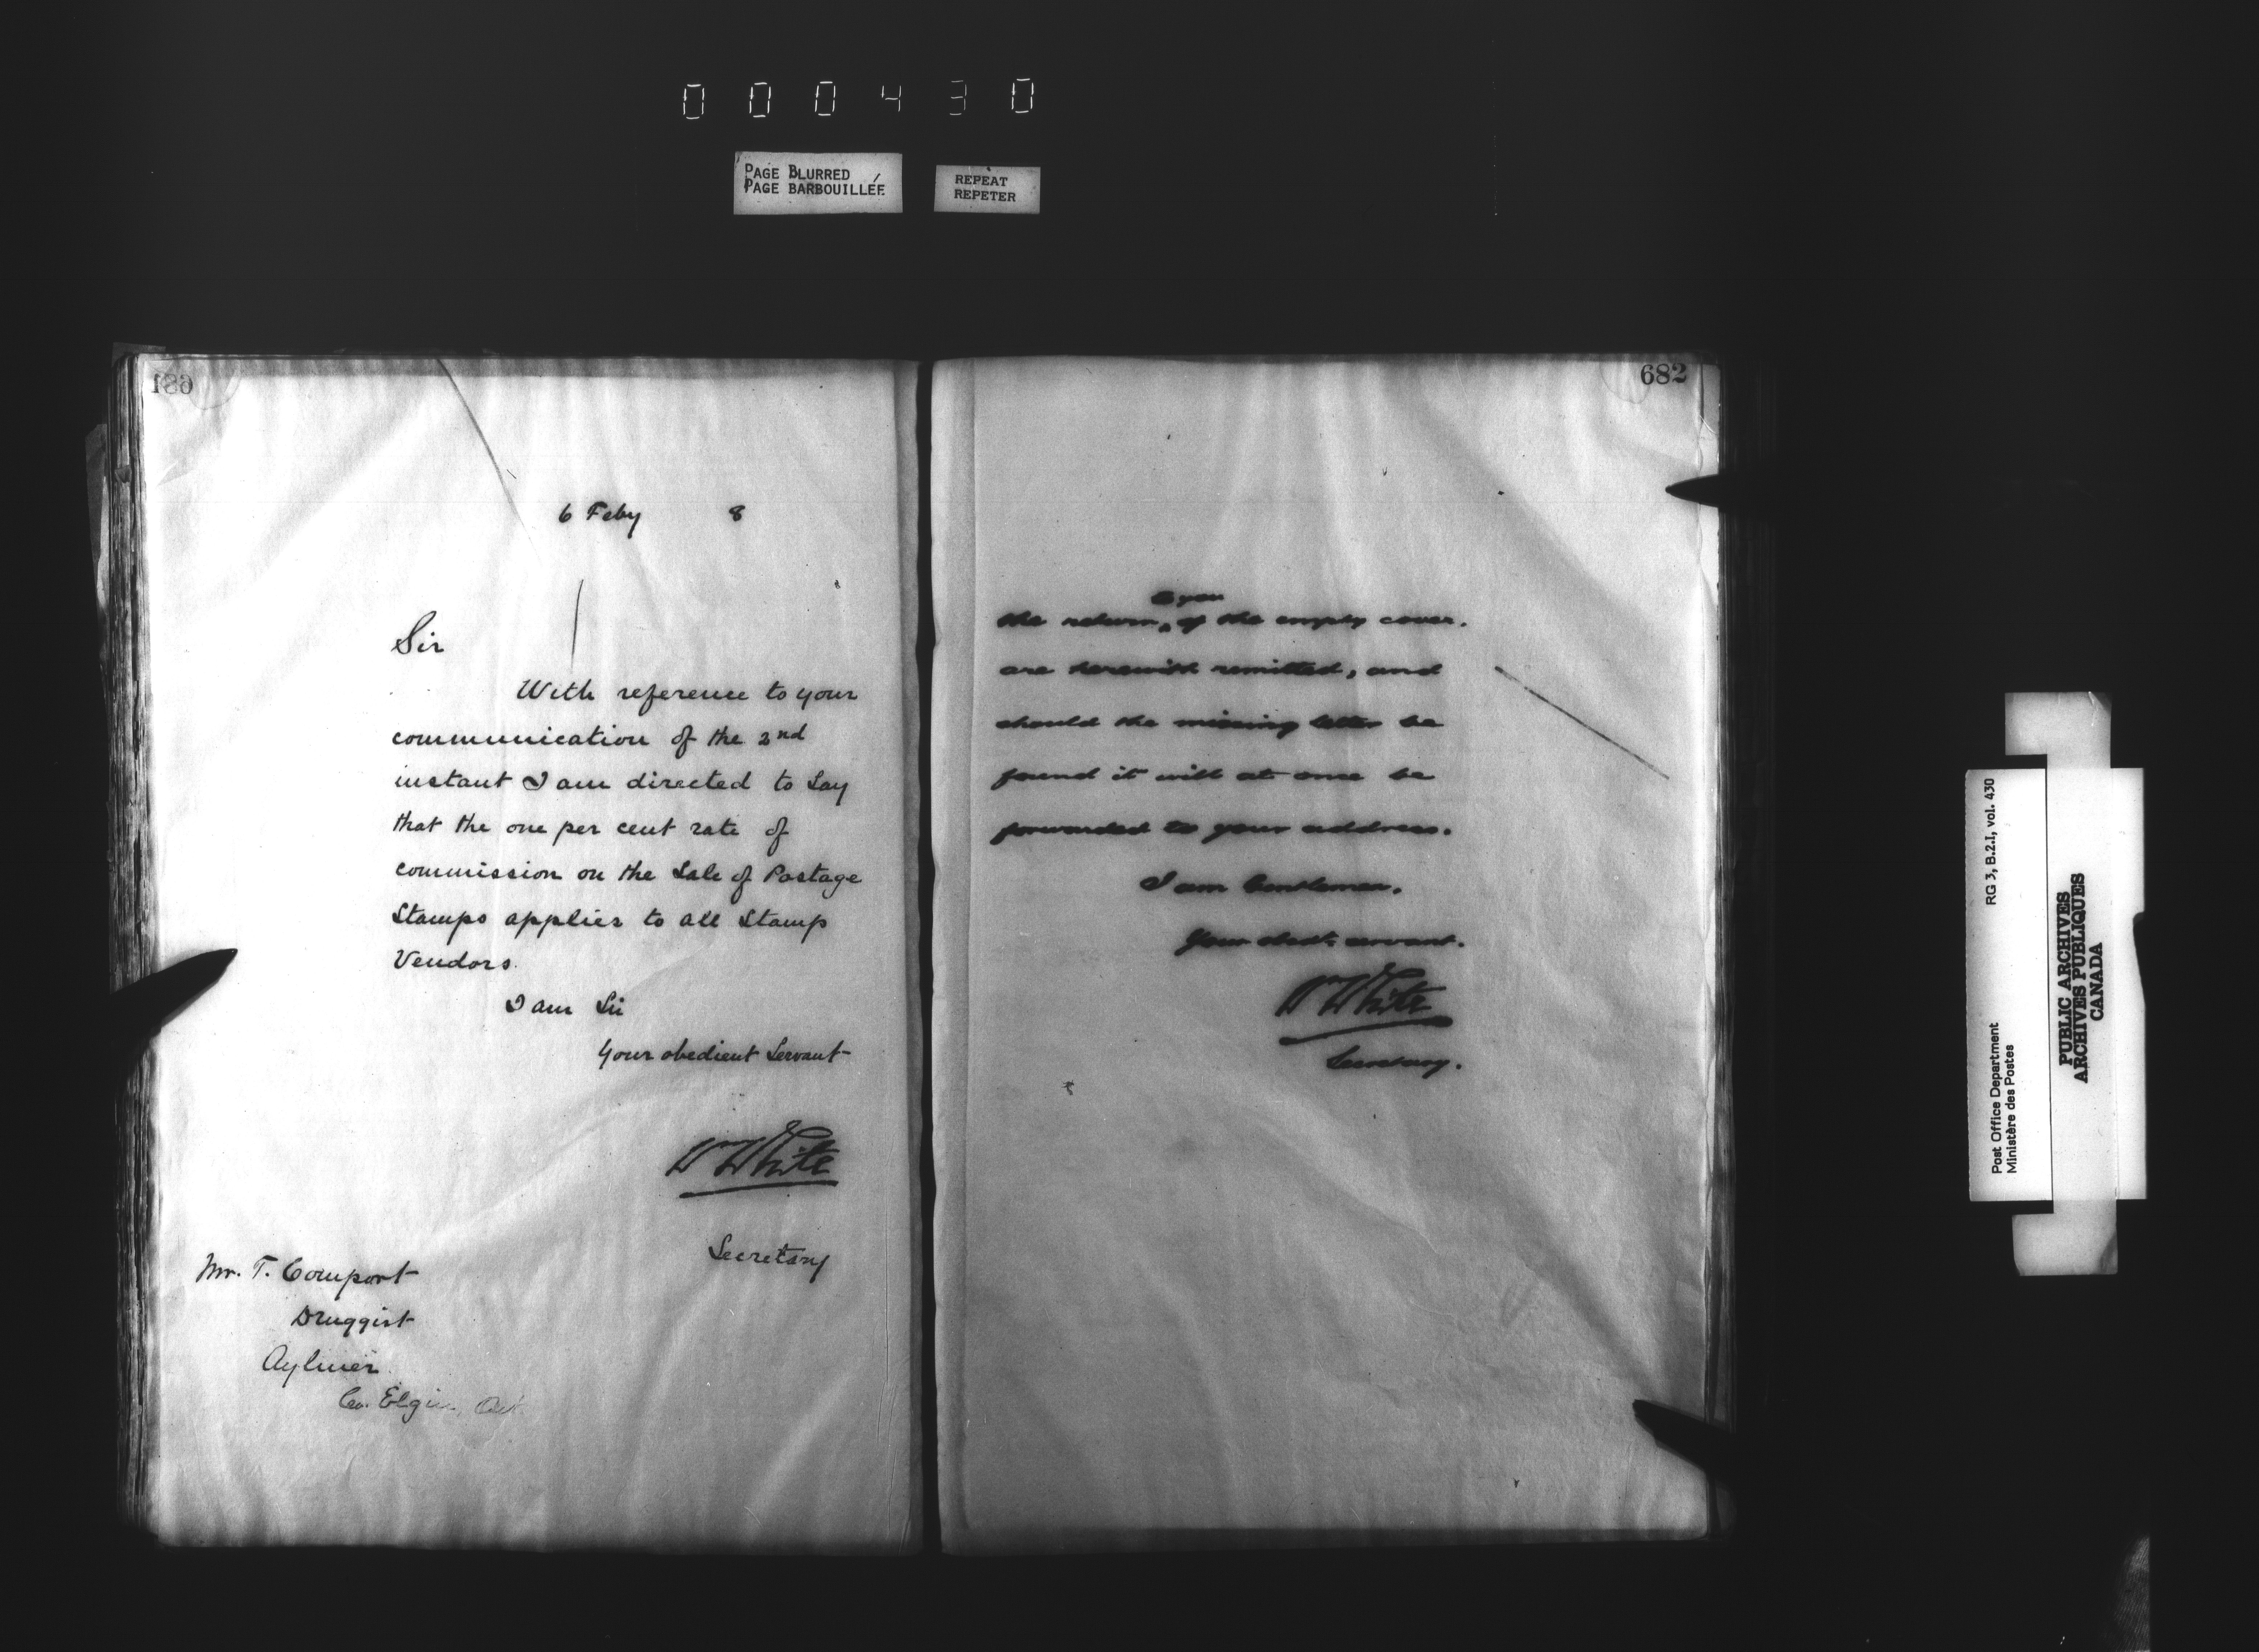 000430
PAGE BLURRED
PAGE BARBOUILLÉE
REPEAT
REPETER
681
6 Feby 8
Sir
With reference to your
communication of the 2nd
instant I am directed to Say
that the one per cent rate of
commission on the Sale of Postage
Stamps applies to all Stamp
Vendors.
I am Sir
Your obedient Servant
Wm White
Secretary
Mr. T. Comport
Druggist
Aylmer
Co. Elgin, Ont
682
to you
the return of the empty cover.
are herewith remitted, and
should the missing letter be
found it will at once be
forwarded to your address.
I am Gentlemen.
Your obedt. servant.
Wm White
Secretary.
RG 3, B.2.I, vol. 430
Post Office Department
Ministère des Postes
PUBLIC ARCHIVES
ARCHIVES PUBLIQUES
CANADA